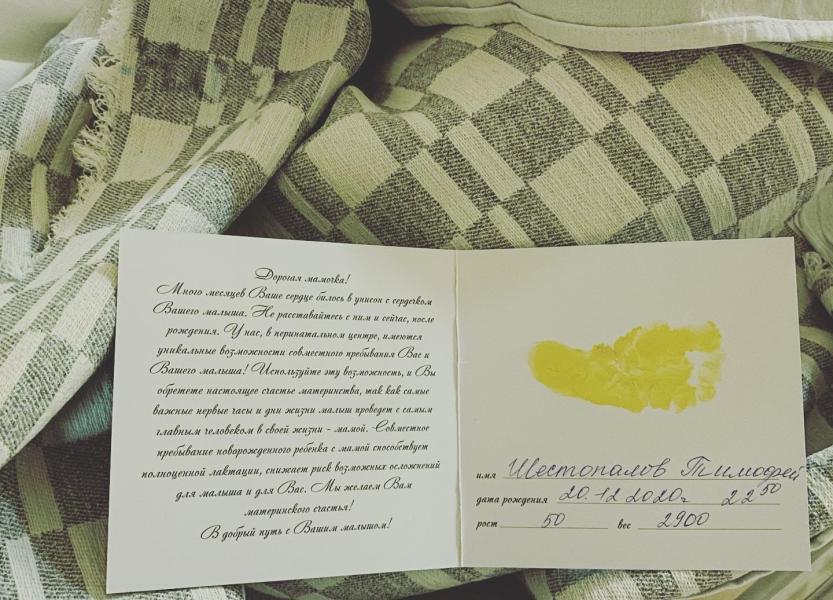 Дорогая мамочка!
Много месяцев Ваше сердце билось в унисон с сердечком
Вашего малыша. Не расставайтесь с ним и сейчас, после
рождения. У нас, в перинатальном центре, имеются
уникальные возможности совместного пребывания Вас и
Вашего малыша! Используйте эту возможность, и Вы
обретете настоящее счастье материнства, так как самые
важные первые часы и дни жизни малыш проведет с самым
главным человеком в своей жизни - мамой. Совместное
пребывание новорожденного ребенка с мамой способствует
полноценной лактации, снижает риск возможных осложнений
для малыша и для Вас. Мы желаем Вам
материнского счастья!
В добрый путь с Вашим малышом!
имя Шестопалов Тимофей
дата рождения 20.12 2020г 22 50
рост 50 вес 2900